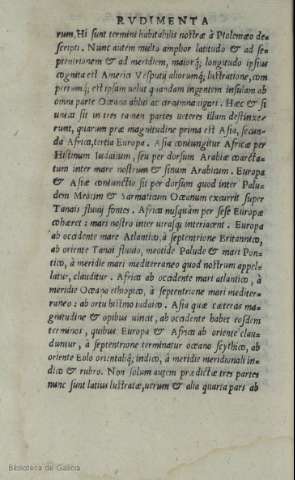 RVDIMENTA
rum, Hi sunt termini habitabilis nostræ à Ptolemæo de=
scripti. Nunc autem multo amplior latitudo & ad se=
ptentrionem & ad meridiem, maiorq; longitudo ipsius
cognita est Americi Vesputij aliorumq; lustratione, com
pertumq; est ipsam uelut quandam ingentem insulam ab
omni parte Oceano ablui ac circumnauigari. Hæc & si
unica sit in tres tamen partes ueteres illam distinxe=
runt, quarum præ magnitudine prima est Asia, secun=
da Africa, tertia Europa. Asia coniungitur Africæ per
Histmum Iudaicum, seu per dorsum Arabiæ coarcta=
tum inter mare nostrum & sinum Arabicum. Europæ
& Asiæ coniunctio sit per dorsum quod inter Palu=
dem Meotim & Sarmaticum Oceanum excurrit super
Tanais fluuij fontes. Africa nusquàm per sese Europæ
cohæret: mari nostro inter utrasq; interiacent. Europa
ab occidente mare Atlantico, à septentrione Britannico,
ab oriente Tanai fluuio, meotide Palude & mari Pon=
tico, à meridie mari mediterraneo quod nostrum appel=
latur, clauditur. Africa ab occidente mari atlantico, à
meridie Oceano æthiopico, à septentrione mari mediter=
raneo: ab ortu histmo iudaico. Asia quæ cæteras ma=
gnitudine & opibus uincit, ab occidente habet eosdem
terminos, quibus Europa & Africa ab oriente clau=
duntur, à septentrione terminatur oceano scythico, ab
oriente Eoo orientaliq; indico, à meridie meridionali in=
dico & rubro. Non solum autem prædictæ tres partes
nunc sunt latius lustratæ, uerum & alia quarta pars ab
Biblioteca de Galicia